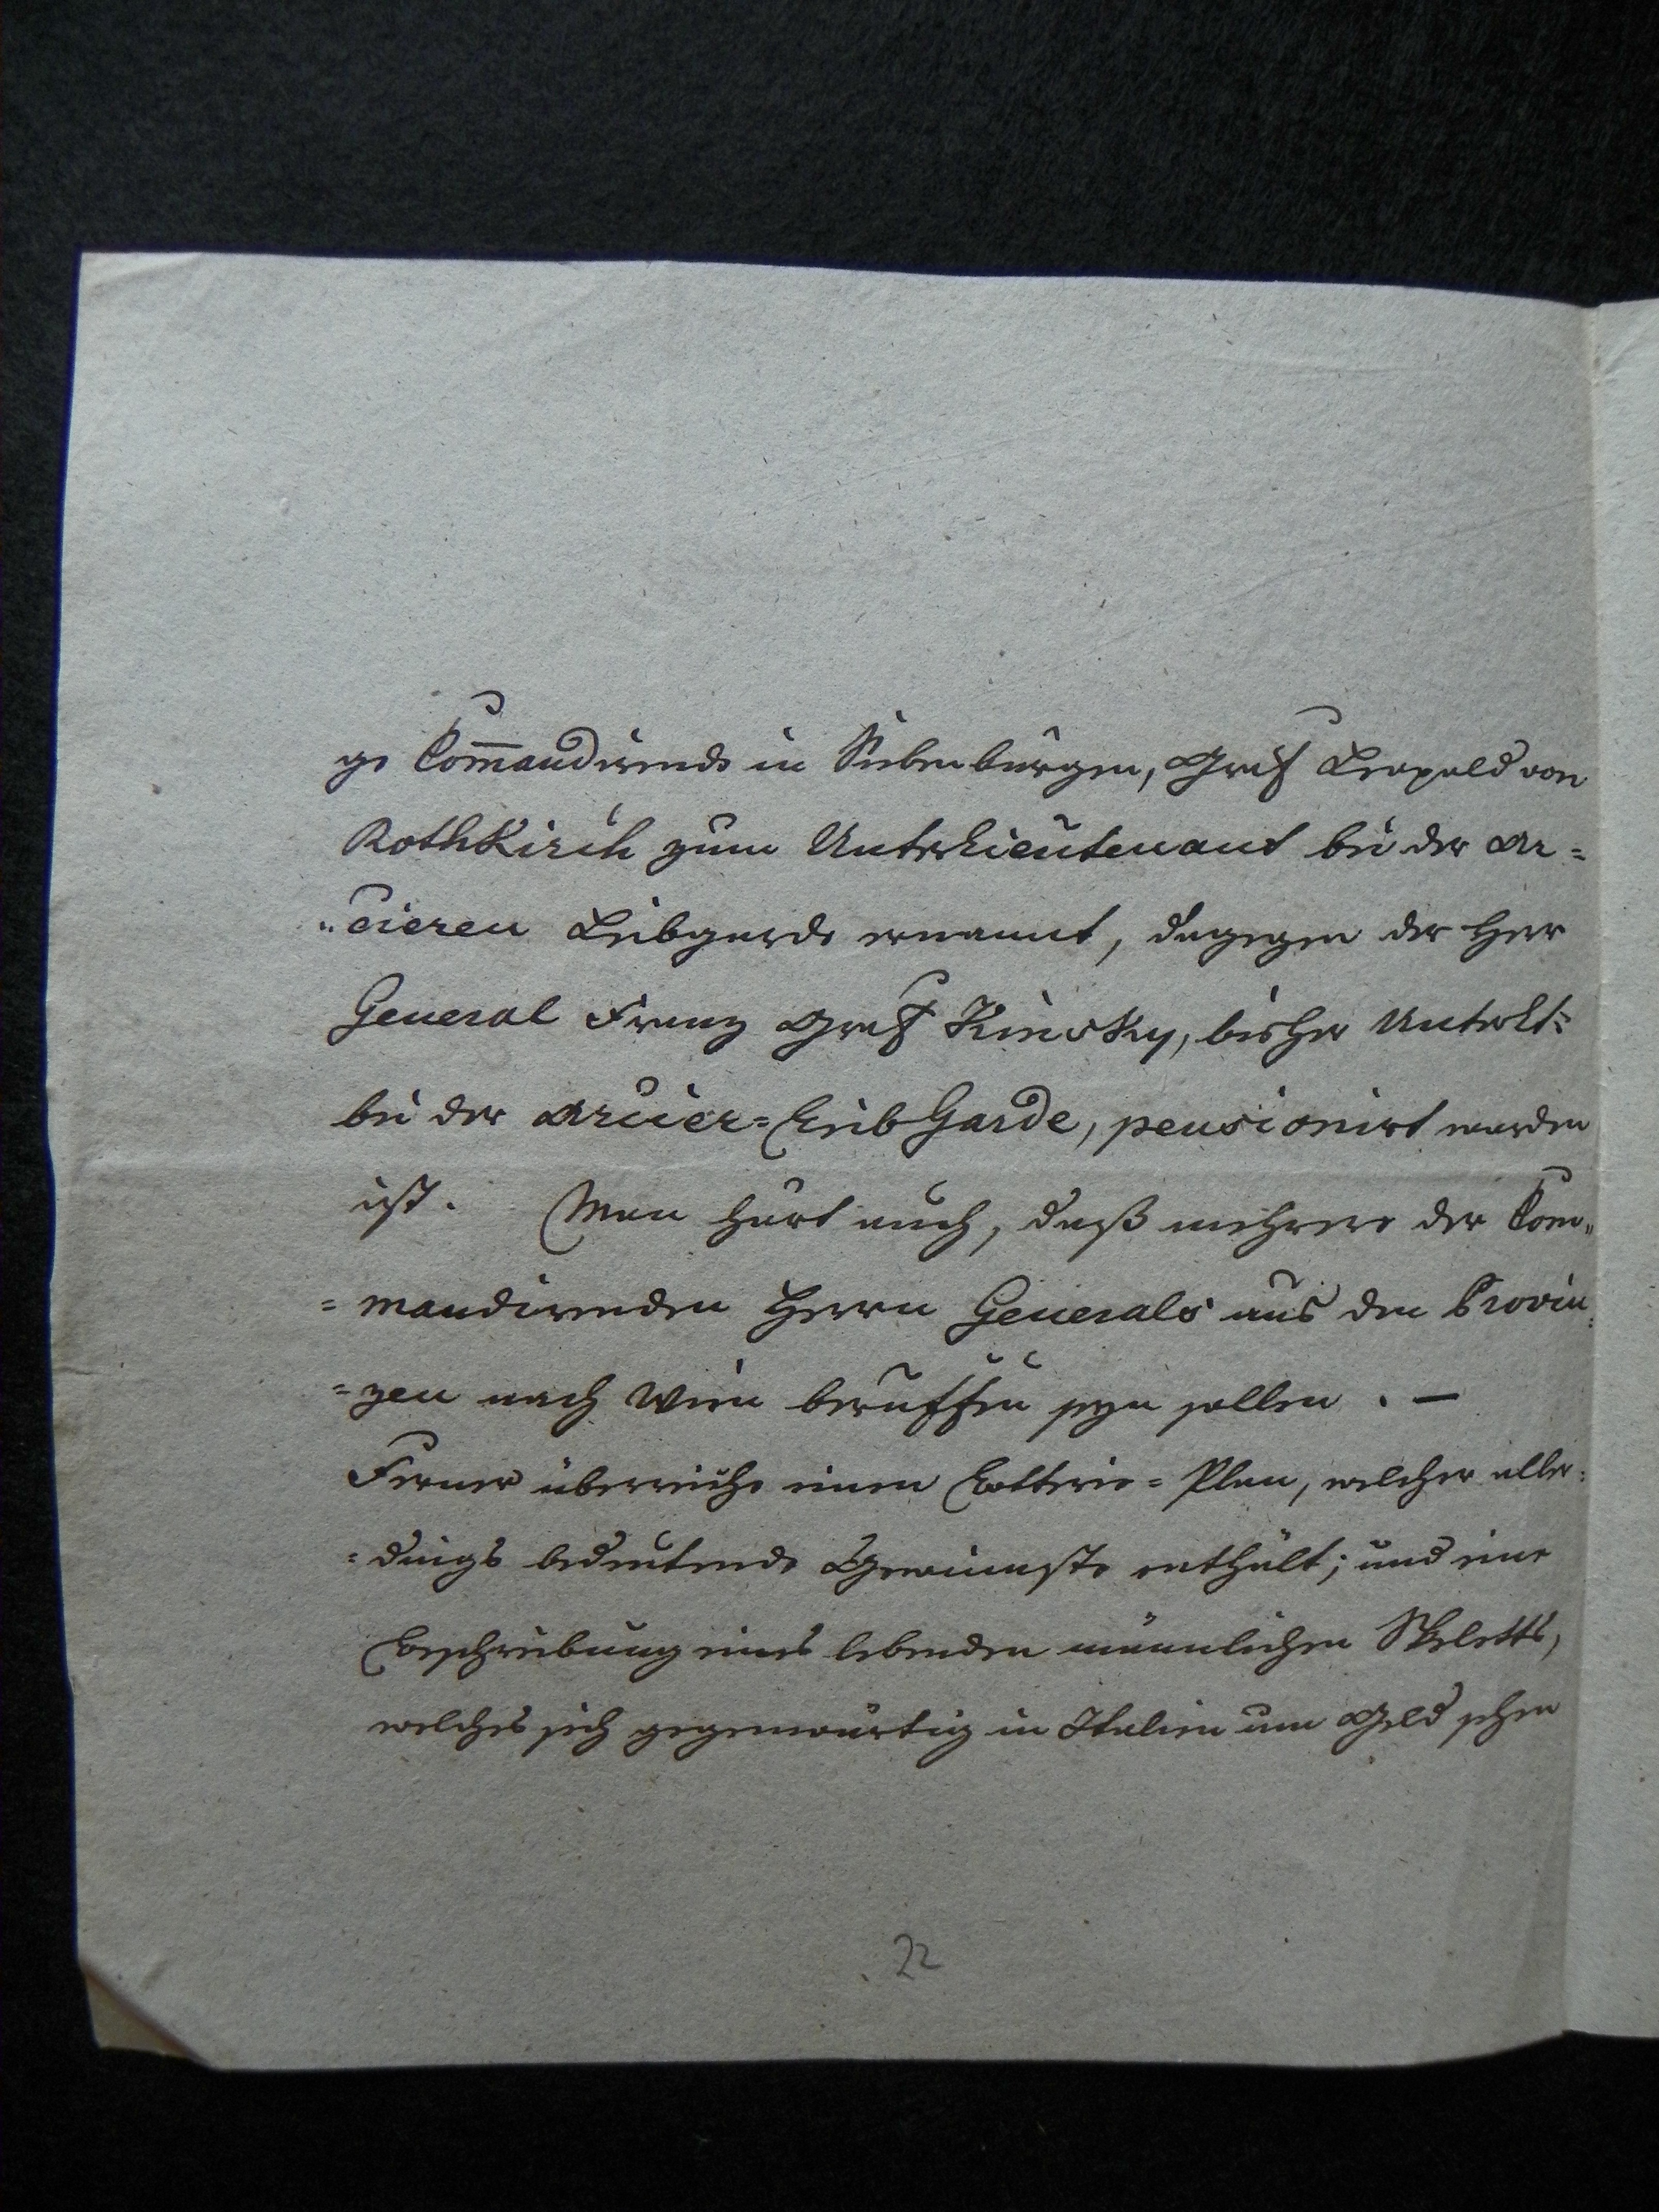 ge Com̅andirende in Siebenbürgen, Graf Leopold von
Rothkirch zum Unterlieutenant bei der Ar=
"cieren Leibgarde ernannt, dagegen der Herr
General Franz Graf Kinsky, bisher Unterlt:
bei der Arcier=Leib Garde, pensionirt worden
ist. Man hört auch, daß mehrere der Com"
=mandirenden Herrn Generals aus den Provin=
=zen nach Wien beruffen seyn sollen. —
Ferner überreiche einen Lotterie=Plan, welcher aller=
=dings bedeutende Gewinnste enthält; und eine
Beschreibung eines lebenden männlichen Skeletts,
welches sich gegenwärtig in Italien um Geld sehen
22